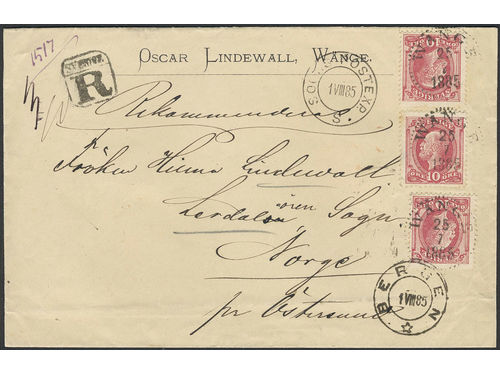 1517
SVERIGE
R
OSCAR LINDEWALL, WANGE.
1 VIII 85
Rekommenderas
Fröken Hilma Lindewall
Lerdalsören Sogn
Norge
pr Östersund
WANGE
25
7
1885
10
WANGE
25
7
1885
10 ÖRE
WANGE
25
7
1885
BERGEN
1 VIII 85